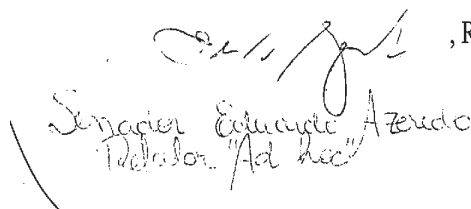 , R
Senador Eduardo Azeredo
Relator "Ad hoc"